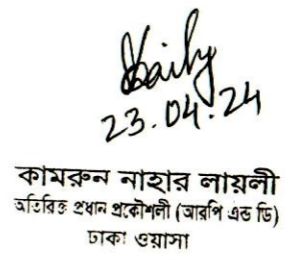 Laily
23.04.24
কামরুন নাহার লায়লী
অতিরিক্ত প্রধান প্রকৌশলী (আরপি এন্ড ডি)
ঢাকা ওয়াসা